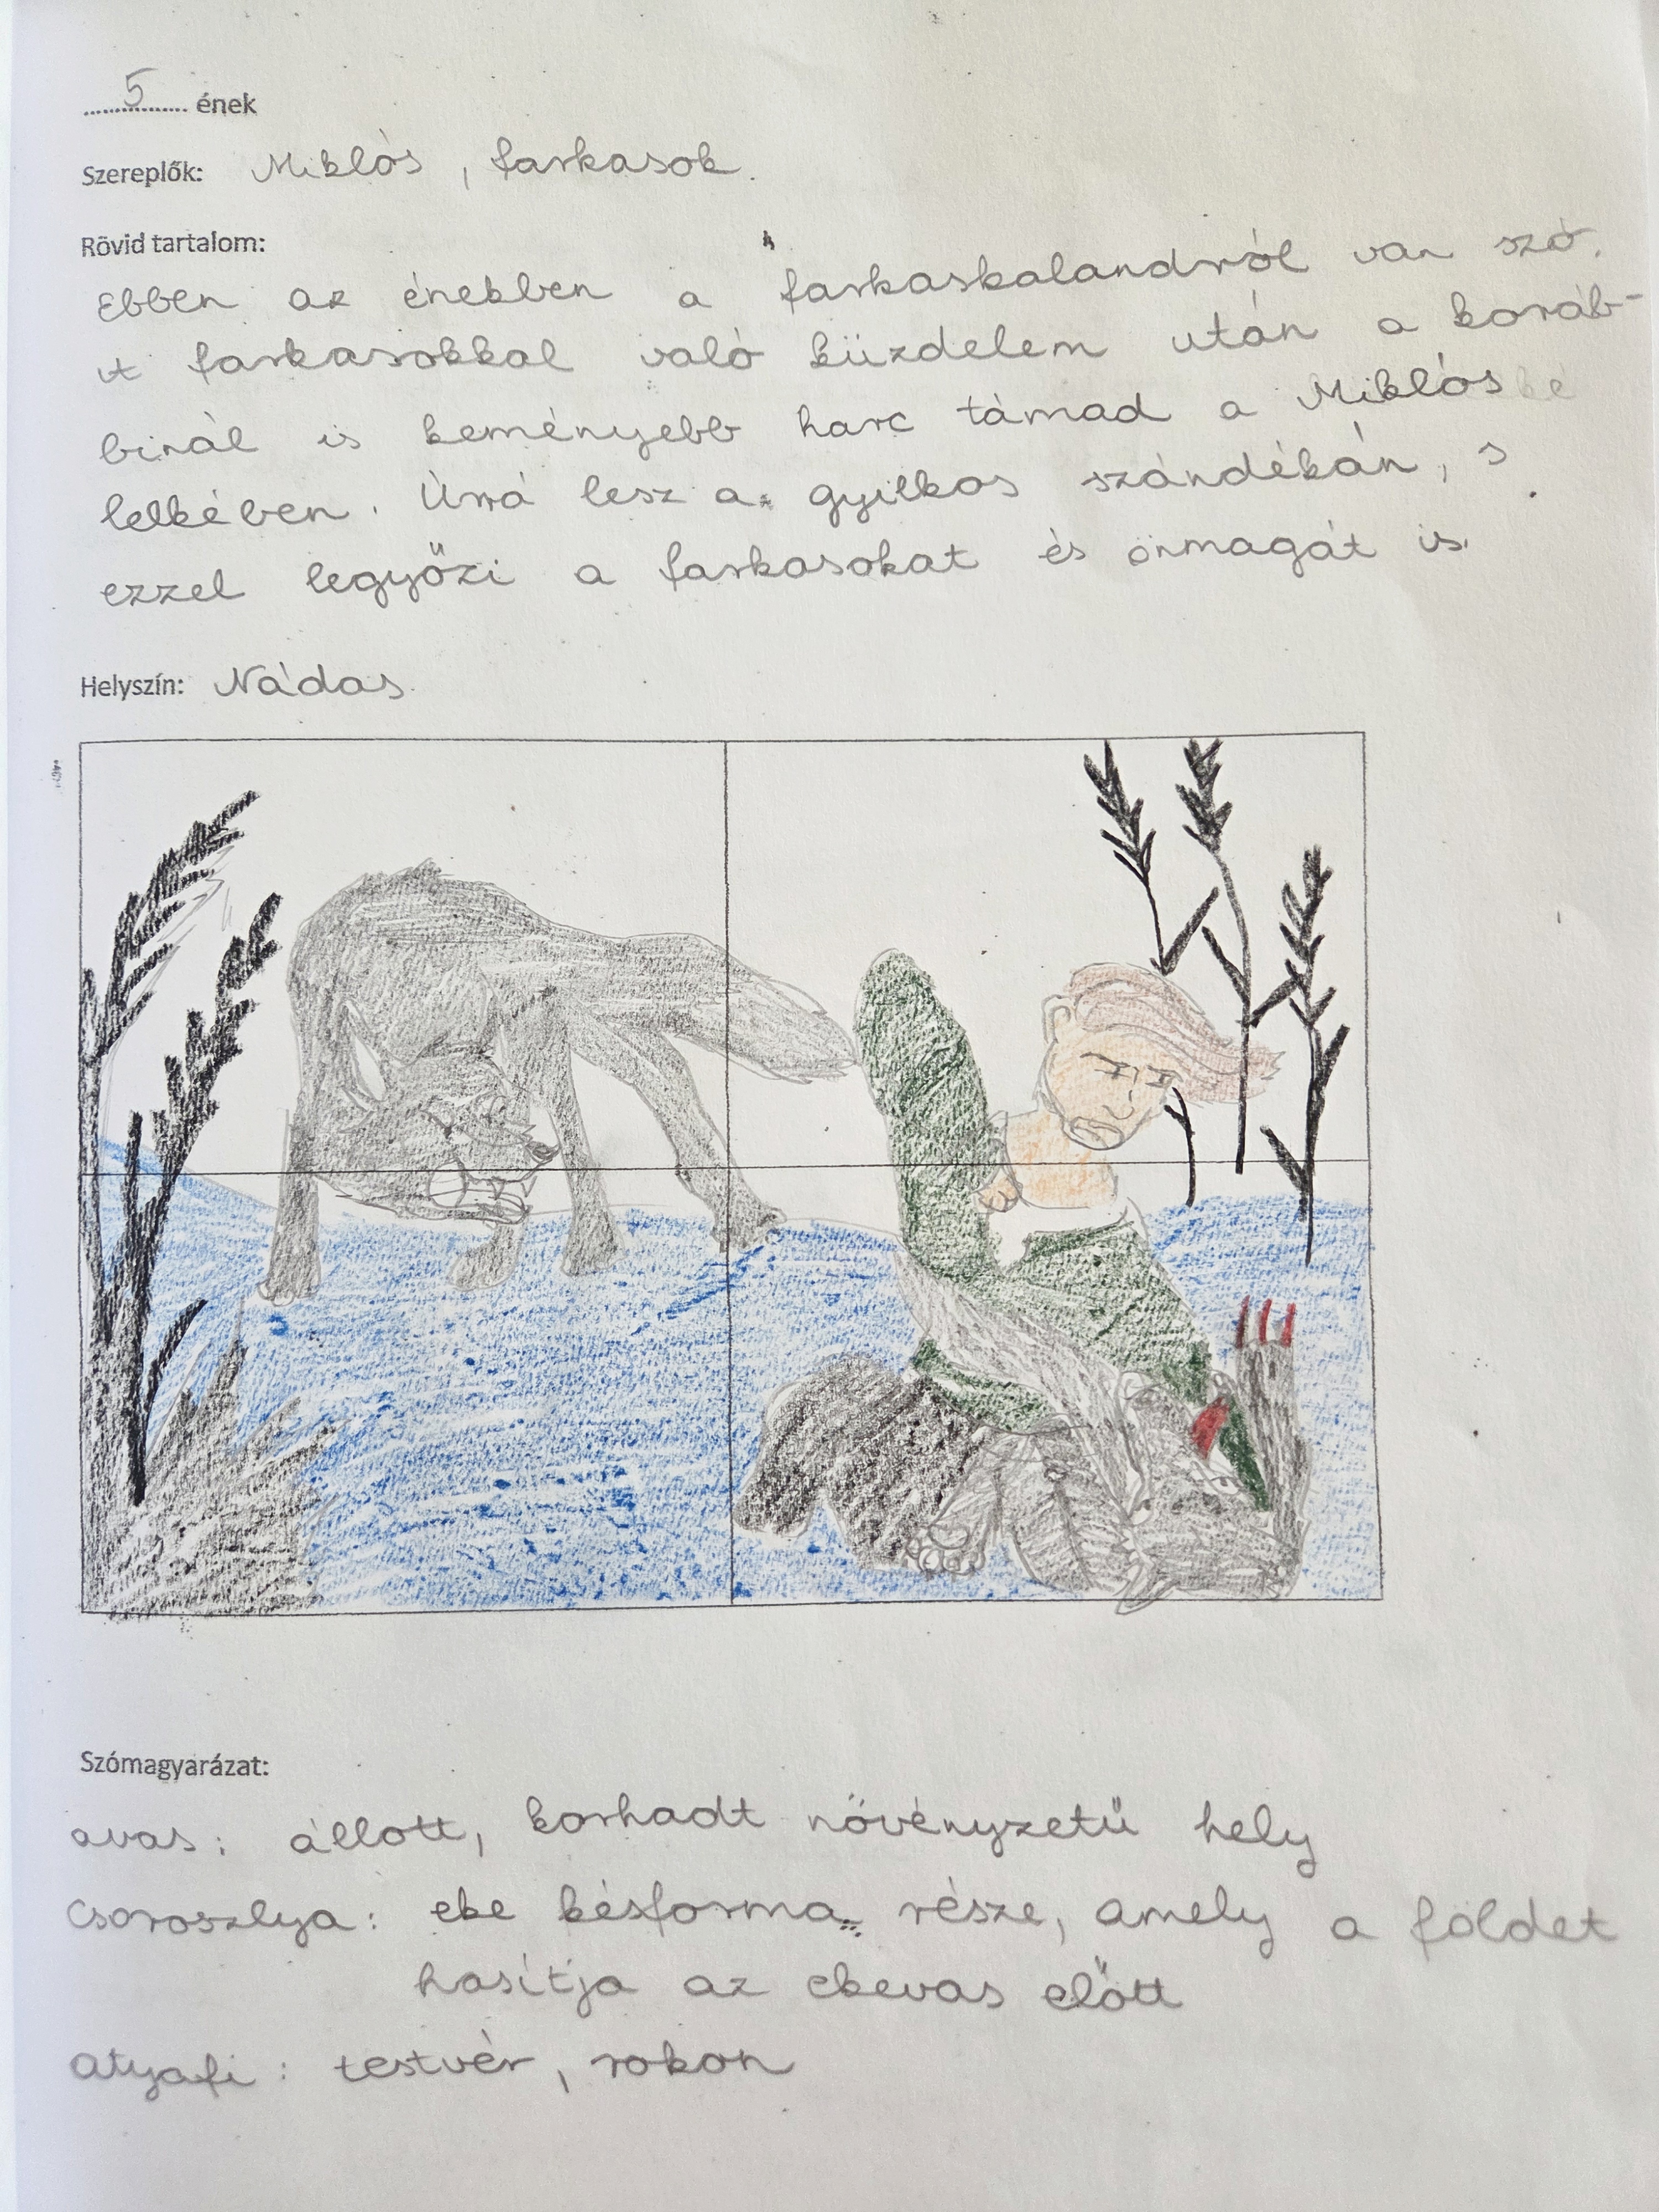 5 ének
Szereplők: Miklós, farkasok.
Rövid tartalom:
Ebben az énekben a farkaskalandról van szó.
A farkasokkal való küzdelem után a koráb-
binál is keményebb harc támad a Miklós
lelkében. Úrrá lesz a gyilkos szándékán, s
ezzel legyőzi a farkasokat és önmagát is.
Helyszín: Nádas
Szómagyarázat:
avas: állott, korhadt növényzetű hely
Csoroszlya: eke késforma része, amely a földet
hasítja az ekevas előtt
atyafi: testvér, rokon